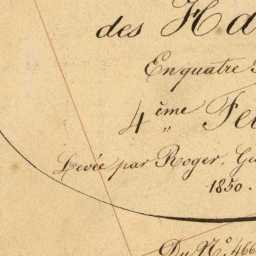 des Ha
En quatre
4ème Fe
Levée par Roger, Gé
1850.
Du N.° 466